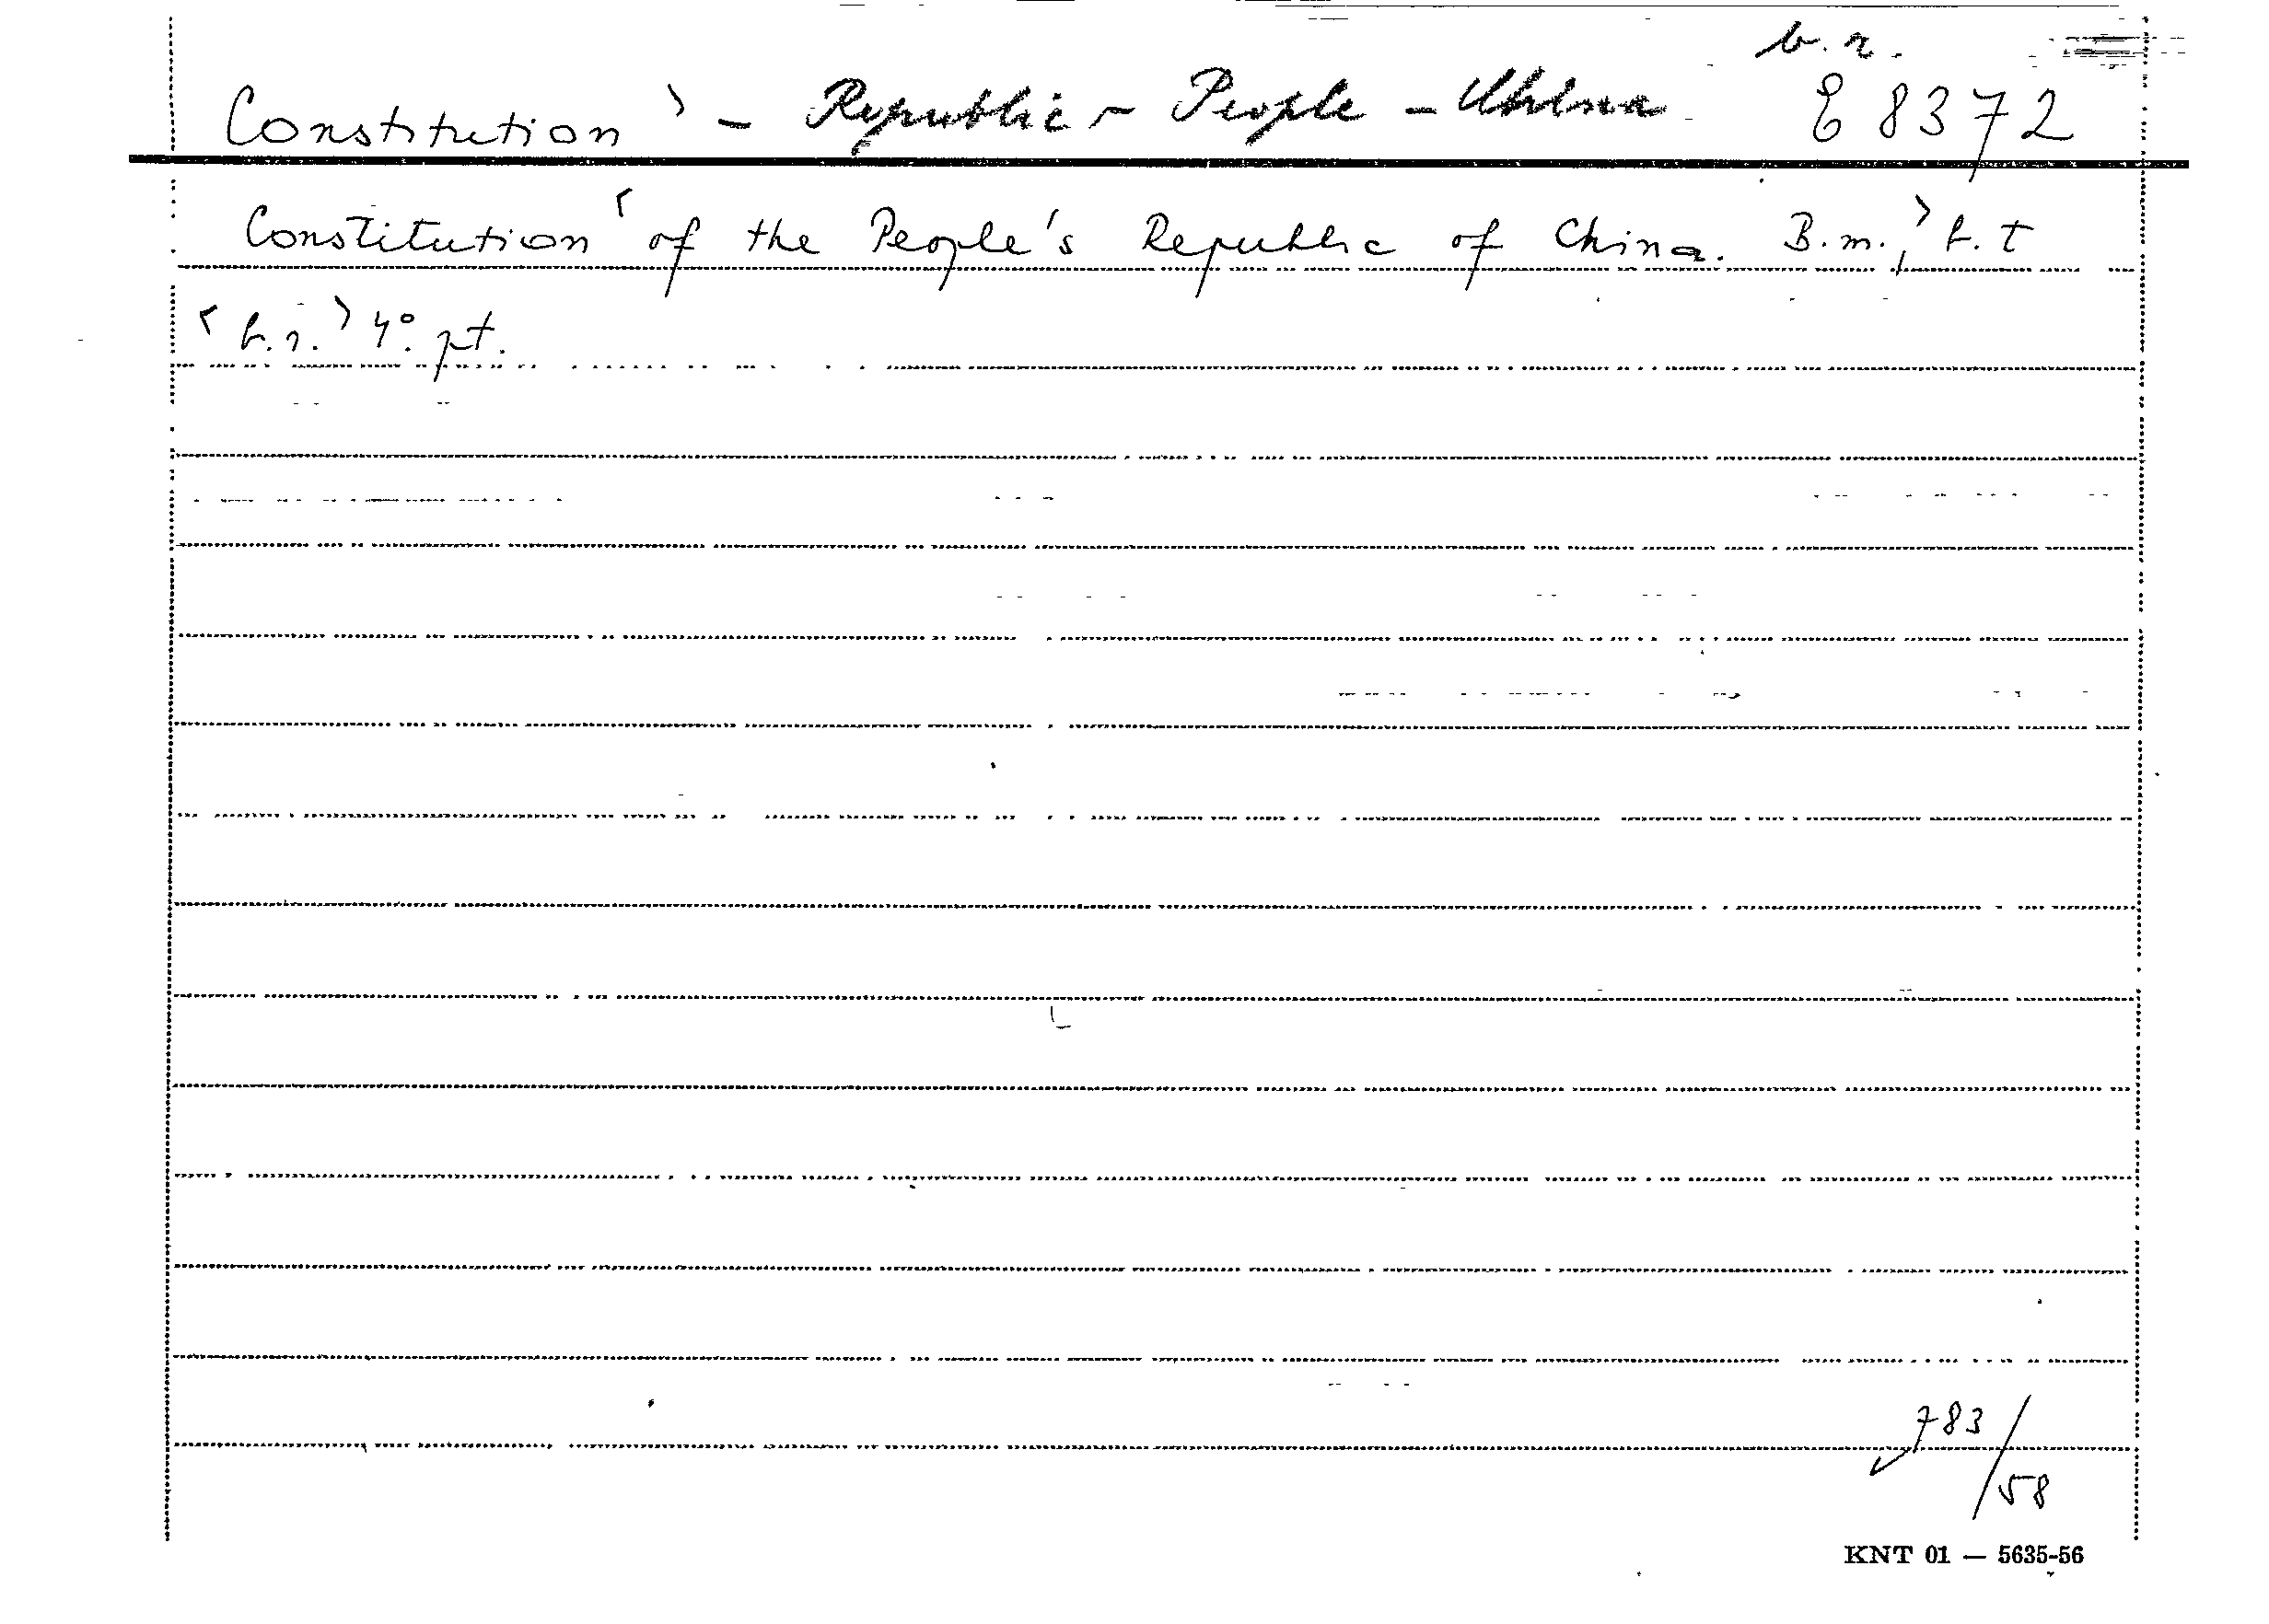 b. r.
Constitution > - Republic - People - China E 8372
Constitution < of the People's Republic of China. B.m., > b. t
< b. r. > 4° pt.
783/58
KNT 01 — 5635-56